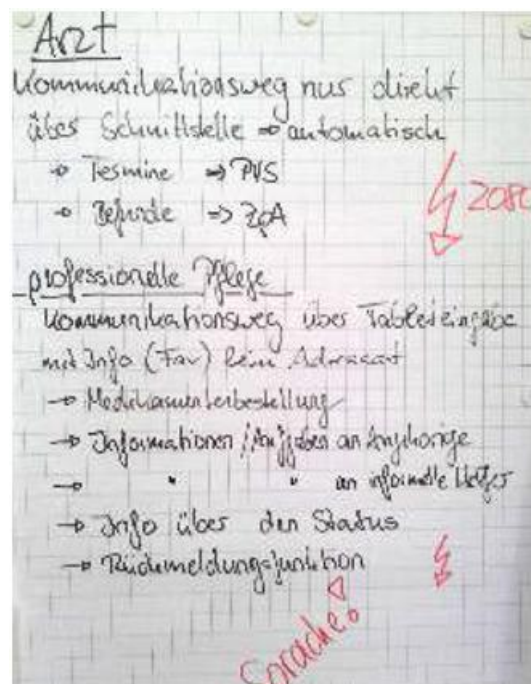 Arzt
Kommunikationsweg nur direkt
über Schnittstelle ⇒ automatisch
→ Termine ⇒ PVS
→ Befunde ⇒
professionelle Pflege
Kommunikationsweg über Tableteingabe
mit Info (Fav) beim
→ Medikamentenbestellung
→ Informationen / Aufgaben an Angehörige
→ " " an informelle Helfer
→ Info über den Status
→ Rückmeldungsfunktion
Sprache!